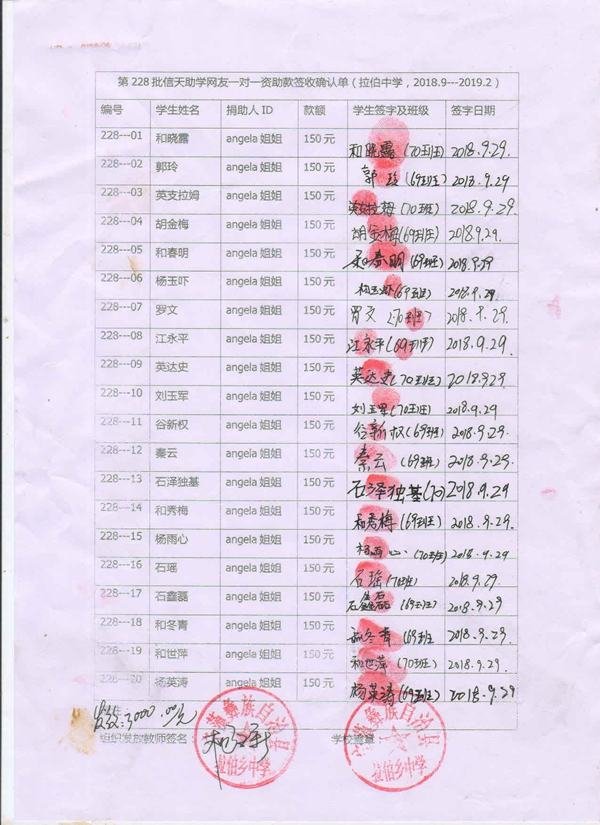 第 228 批信天助学网友一对一资助款签收确认单（拉伯中学，2018.9---2019.2）
编号 学生姓名 捐助人 ID 款额 学生签字及班级 签字日期
228---01 和晓露 angela 姐姐 150 元 和晓露(70班) 2018.9.29.
228---02 郭玲 angela 姐姐 150 元 郭玲(69班) 2018.9.29
228---03 英支拉姆 angela 姐姐 150 元 英支拉姆(70班) 2018.9.29.
228---04 胡金梅 angela 姐姐 150 元 胡金梅(69班) 2018.9.29.
228---05 和春明 angela 姐姐 150 元 和春明(69班) 2018.9.29
228---06 杨玉吓 angela 姐姐 150 元 杨玉吓(69班) 2018.9.29
228---07 罗文 angela 姐姐 150 元 罗文(70班) 2018.9.29
228---08 江永平 angela 姐姐 150 元 江永平(69班) 2018.9.29.
228---09 英达史 angela 姐姐 150 元 英达史(70班) 2018.9.29
228---10 刘玉军 angela 姐姐 150 元 刘玉军(70班) 2018.9.29
228---11 谷新权 angela 姐姐 150 元 谷新权(69班) 2018.9.29.
228---12 秦云 angela 姐姐 150 元 秦云(69班) 2018.9.29.
228---13 石泽独基 angela 姐姐 150 元 石泽独基(70) 2018.9.29
228---14 和秀梅 angela 姐姐 150 元 和秀梅(69班) 2018.9.29.
228---15 杨雨心 angela 姐姐 150 元 杨雨心(70班) 2018.9.29
228---16 石瑶 angela 姐姐 150 元 石瑶(71班) 2018.9.29.
228---17 石鑫磊 angela 姐姐 150 元 石鑫磊(69班) 2018.9.29
228---18 和冬青 angela 姐姐 150 元 和冬青(69班 2018.9.29.
228---19 和世萍 angela 姐姐 150 元 和世萍(70班) 2018.9.29.
228---20 杨英涛 angela 姐姐 150 元 杨英涛(69班) 2018.9.29
发放:3000.00元
组织发放教师签名： 学校盖章：
宁蒗彝族自治县 拉伯乡中学
宁蒗彝族自治县 拉伯乡中学